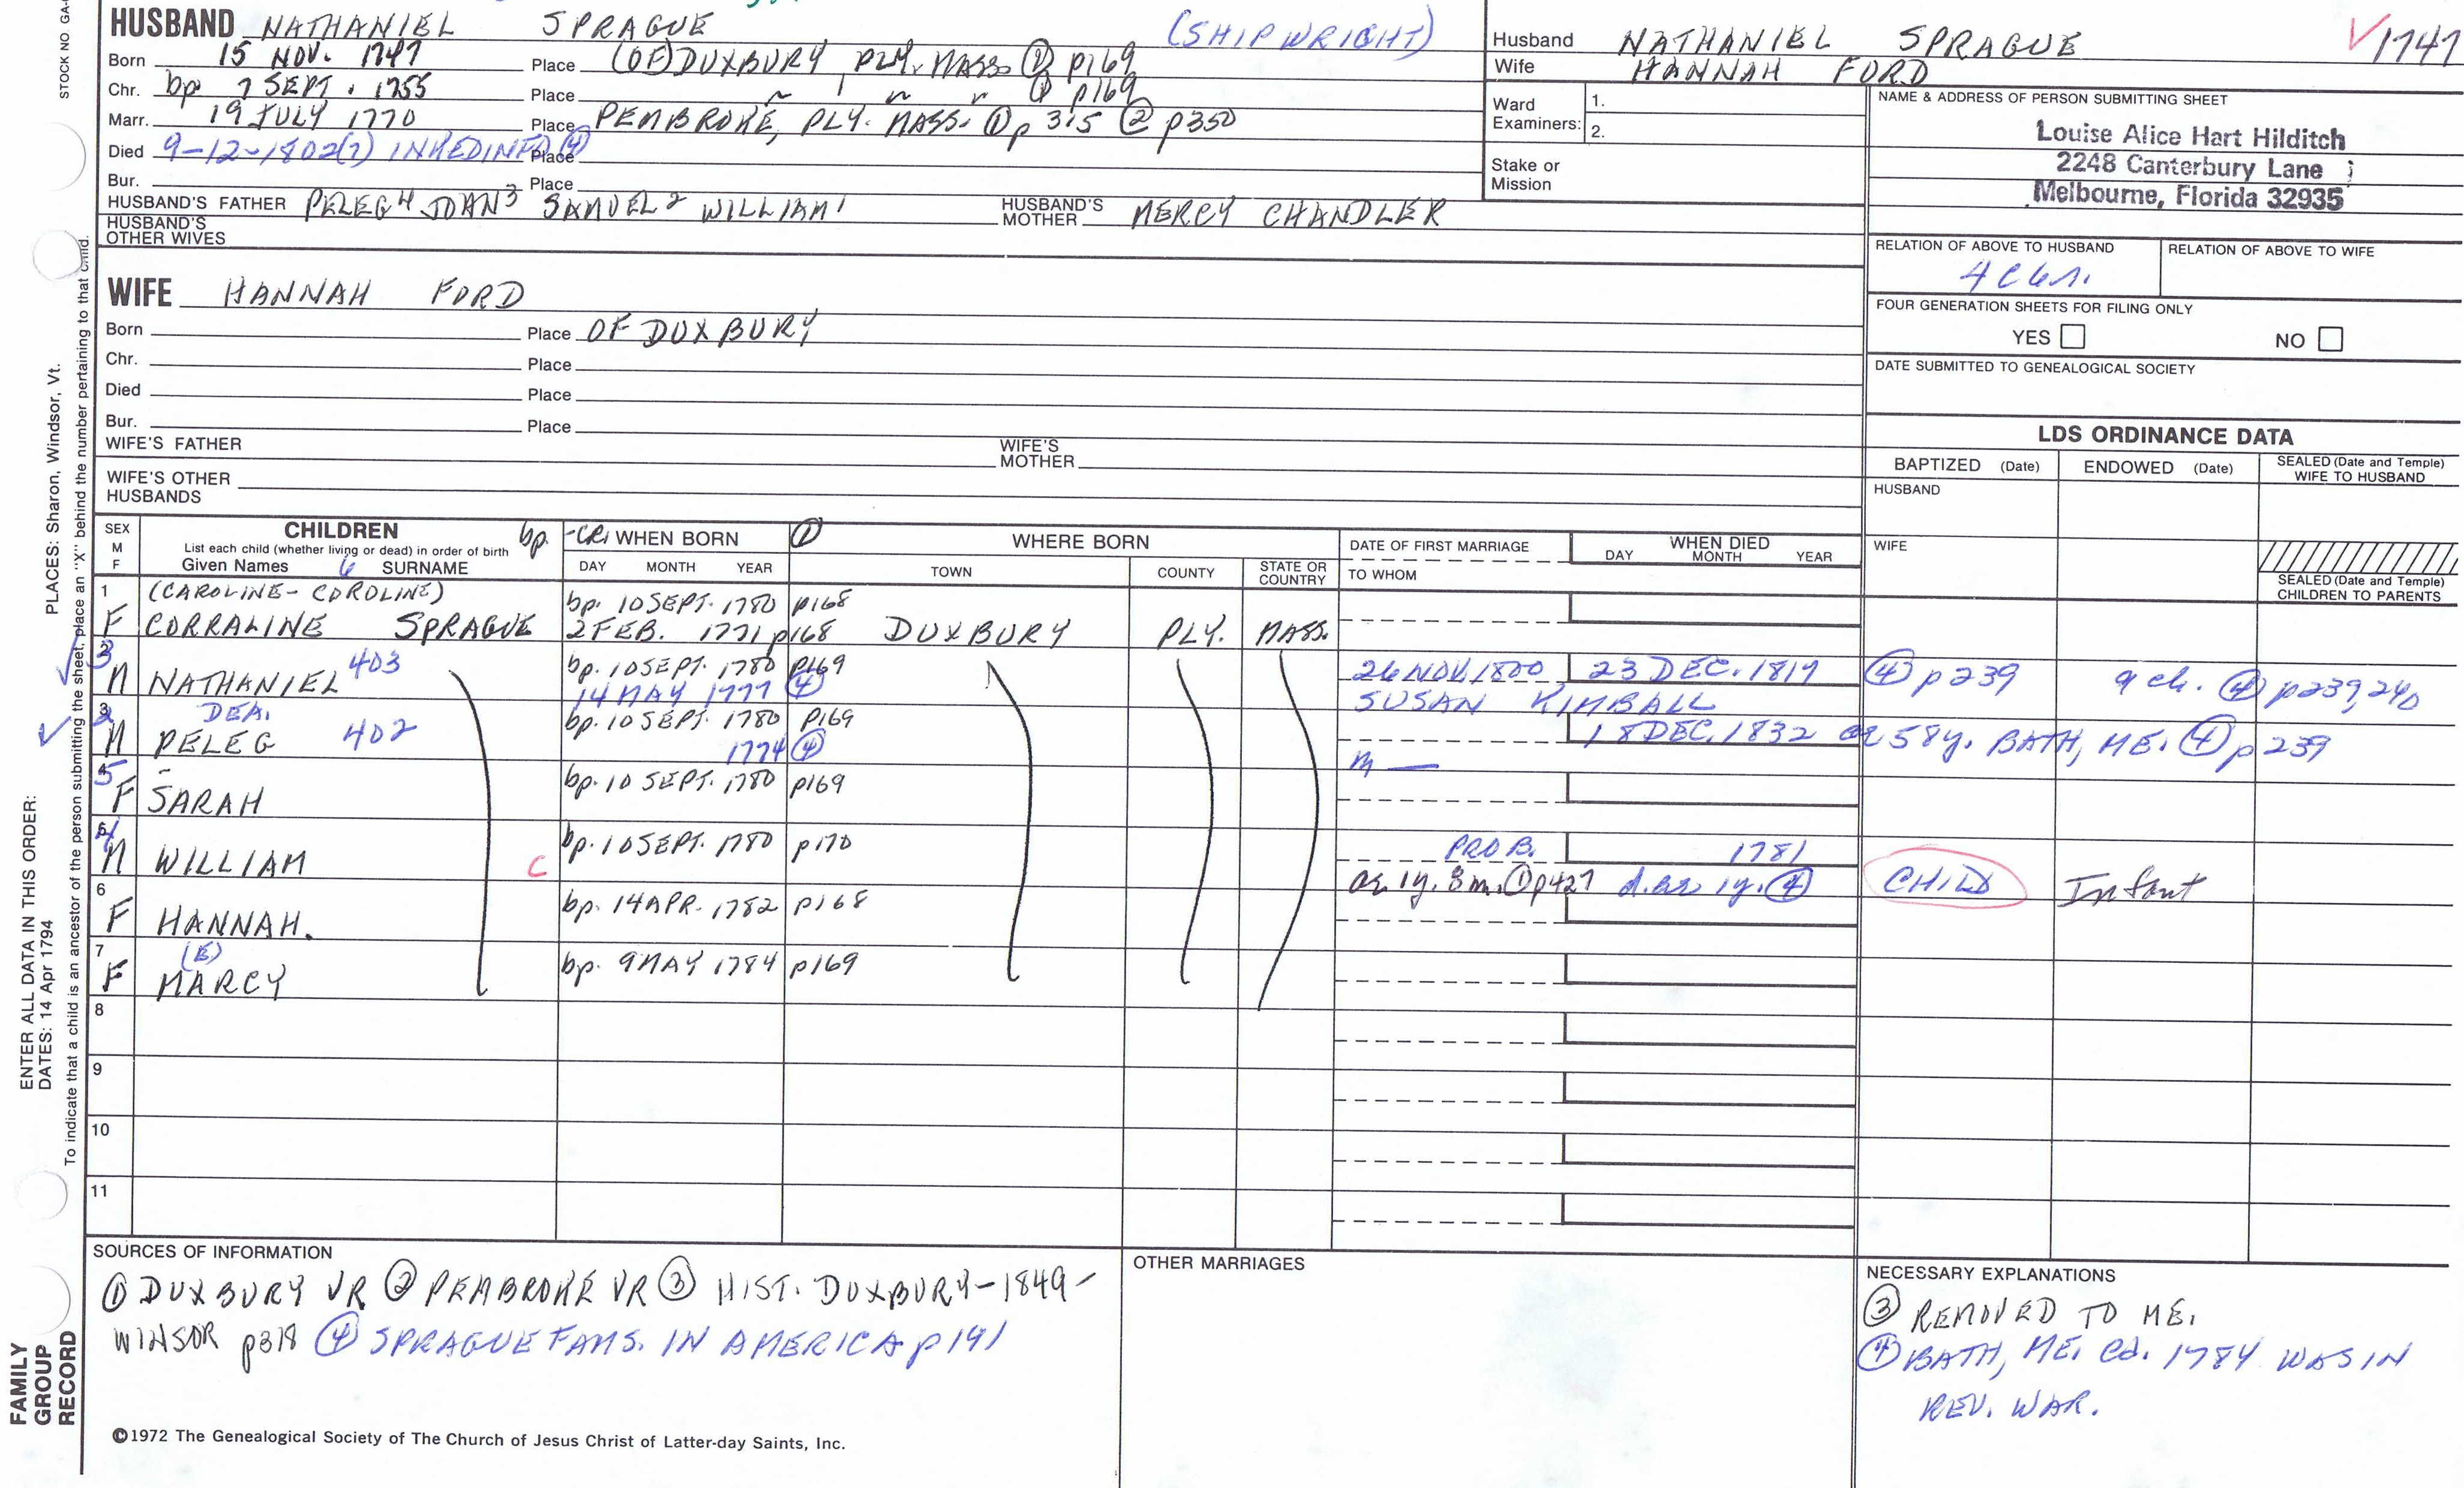 STOCK NO. GA-
HUSBAND NATHANIEL SPRAGUE (SHIPWRIGHT)
Born 15 NOV. 1747 Place (OF) DUXBURY, PLY. MASS. ① p169
Chr. bp 7 SEPT. 1755 Place " " " " ① p169
Marr. 19 JULY 1770 Place PEMBROKE, PLY. MASS. ① p 315 ② p350
Died 9-12-1802(?) INKED INFO ④ Place
Bur. Place
HUSBAND'S FATHER PELEG4 JOHN3 SAMUEL2 WILLIAM1 HUSBAND'S MOTHER MERCY CHANDLER
HUSBAND'S OTHER WIVES
Husband NATHANIEL SPRAGUE ✓1747
Wife HANNAH FORD
Ward Examiners: 1.
2.
Stake or Mission
NAME & ADDRESS OF PERSON SUBMITTING SHEET
Louise Alice Hart Hilditch
2248 Canterbury Lane
Melbourne, Florida 32935
RELATION OF ABOVE TO HUSBAND RELATION OF ABOVE TO WIFE
4 C 6 r.
FOUR GENERATION SHEETS FOR FILING ONLY
YES NO
DATE SUBMITTED TO GENEALOGICAL SOCIETY
WIFE HANNAH FORD
Born Place OF DUXBURY
Chr. Place
Died Place
Bur. Place
WIFE'S FATHER WIFE'S MOTHER
WIFE'S OTHER HUSBANDS
LDS ORDINANCE DATA
BAPTIZED (Date) ENDOWED (Date) SEALED (Date and Temple) WIFE TO HUSBAND
HUSBAND
WIFE
SEALED (Date and Temple) CHILDREN TO PARENTS
SEX M F
CHILDREN bp. -CR.
List each child (whether living or dead) in order of birth
Given Names 6 SURNAME
WHEN BORN ①
DAY MONTH YEAR
WHERE BORN
TOWN COUNTY STATE OR COUNTRY
DATE OF FIRST MARRIAGE
TO WHOM
WHEN DIED
DAY MONTH YEAR
1 (CAROLINE - COROLINE) bp. 10 SEPT. 1780 p168
F CORRALINE SPRAGUE 2 FEB. 1771 p168 DUXBURY PLY. MASS.
2 3 403 bp. 10 SEPT. 1780 p169 26 NOV. 1800 23 DEC. 1819 ④ p239 9 ch. ④ p239,240
M NATHANIEL 14 MAY 1777 ④ SUSAN KIMBALL
3 2 DEA. 402 bp. 10 SEPT. 1780 p169 18 DEC. 1832 ae 58y. BATH, ME. ④ p 239
M PELEG 1774 ④ m —
4 5 bp. 10 SEPT. 1780 p169
F SARAH
5 4 bp. 10 SEPT. 1780 p170 PROB. 1781
M WILLIAM C ae 1y. 8m. ① p427 d. ae 1y. ④ CHILD Infant
6 bp. 14 APR. 1782 p168
F HANNAH.
7 (E) bp. 9 MAY 1784 p169
F MARCY
8
9
10
11
SOURCES OF INFORMATION
① DUXBURY VR ② PEMBROKE VR ③ HIST. DUXBURY-1849-
WINSOR p319 ④ SPRAGUE FAMS. IN AMERICA p191
OTHER MARRIAGES
NECESSARY EXPLANATIONS
③ REMOVED TO ME.
④ BATH, ME. Cd. 1784 WAS IN
REV. WAR.
©1972 The Genealogical Society of The Church of Jesus Christ of Latter-day Saints, Inc.
FAMILY GROUP RECORD
ENTER ALL DATA IN THIS ORDER:
DATES: 14 Apr 1794
PLACES: Sharon, Windsor, Vt.
To indicate that a child is an ancestor of the person submitting the sheet, place an "X" behind the number pertaining to that child.